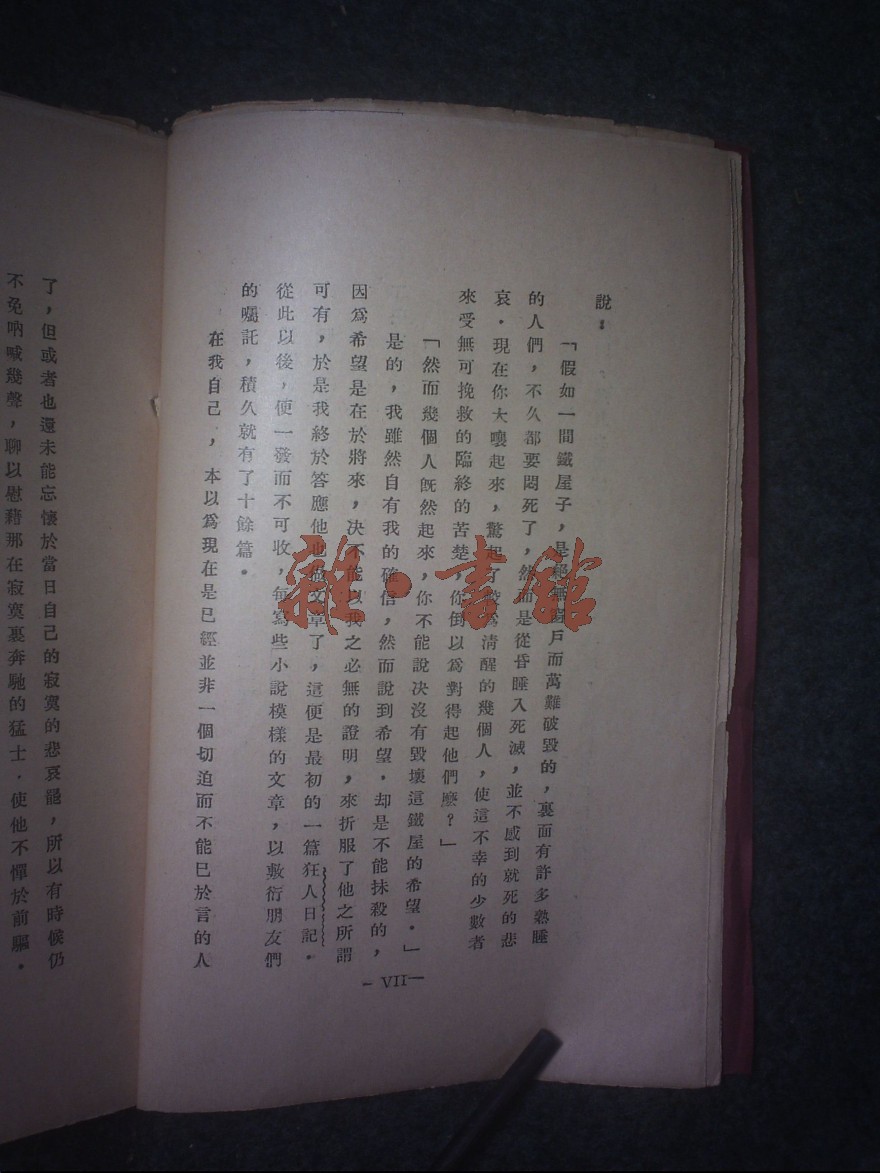 說：
「假如一間鐵屋子，是絕無窗戶而萬難破毀的，裏面有許多熟睡
的人們，不久都要悶死了，然而是從昏睡入死滅，並不感到就死的悲
哀．現在你大嚷起來，驚起了較爲清醒的幾個人，使這不幸的少數者
來受無可挽救的臨終的苦楚，你倒以爲對得起他們麽？」
「然而幾個人旣然起來，你不能說決沒有毀壞這鐵屋的希望．」
是的，我雖然自有我的確信，然而說到希望．却是不能抹殺的，
因爲希望是在於將來，決不能以我之必無的證明，來折服了他之所謂
可有，於是我終於答應他也做文章了，這便是最初的一篇狂人日記．
從此以後，便一發而不可收，每寫些小說模樣的文章，以敷衍朋友們
的囑託，積久就有了十餘篇．
在我自己，本以爲現在是已經並非一個切迫而不能已於言的人
－VII－
了，但或者也還未能忘懷於當日自己的寂寞的悲哀罷，所以有時候仍
不免吶喊幾聲，聊以慰藉那在寂寞裏奔馳的猛士．使他不憚於前驅．
雜·書館